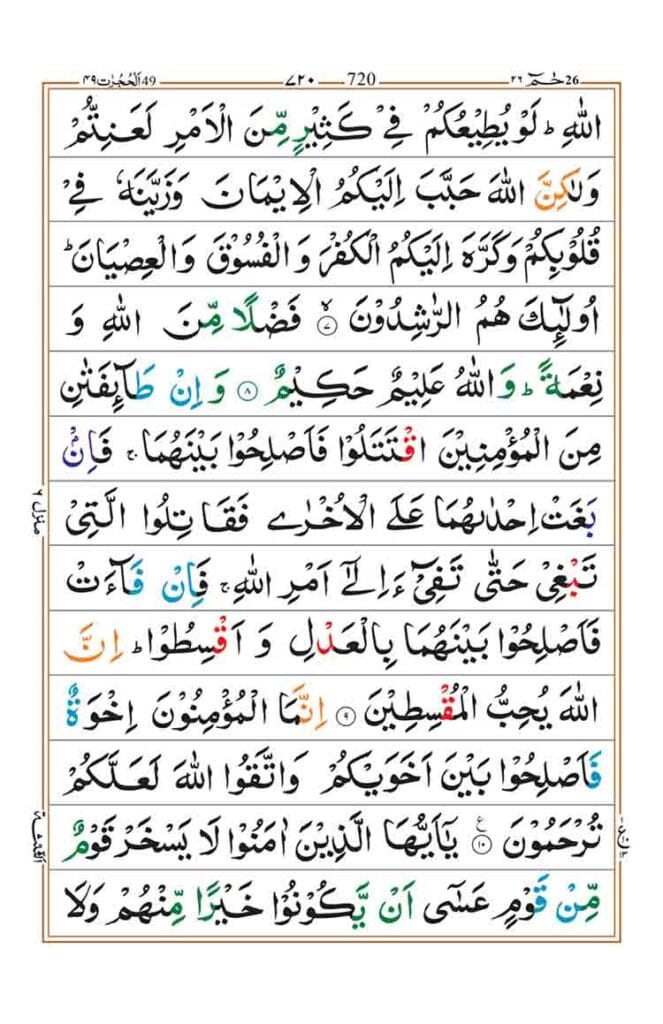 26 حٰمٓ ٢٦ 720 ٧٢٠ 49 اَلْحُجُرٰت ٤٩
اللّٰهِ ؕ لَوْ يُطِيْعُكُمْ فِيْ كَثِيْرٍ مِّنَ الْاَمْرِ لَعَنِتُّمْ
وَلٰكِنَّ اللّٰهَ حَبَّبَ اِلَيْكُمُ الْاِيْمَانَ وَزَيَّنَهٗ فِيْ
قُلُوْبِكُمْ وَكَرَّهَ اِلَيْكُمُ الْكُفْرَ وَ الْفُسُوْقَ وَالْعِصْيَانَ ؕ
اُولٰٓئِكَ هُمُ الرّٰشِدُوْنَ ۙ﴿٧﴾ فَضْلًا مِّنَ اللّٰهِ وَ
نِعْمَةً ؕ وَاللّٰهُ عَلِيْمٌ حَكِيْمٌ ﴿٨﴾ وَ اِنْ طَآئِفَتٰنِ
مِنَ الْمُؤْمِنِيْنَ اقْتَتَلُوْا فَاَصْلِحُوْا بَيْنَهُمَا ۚ فَاِنْۢ
بَغَتْ اِحْدٰىهُمَا عَلَى الْاُخْرٰى فَقَاتِلُوا الَّتِيْ
تَبْغِيْ حَتّٰى تَفِيْٓءَ اِلٰٓى اَمْرِ اللّٰهِ ۚ فَاِنْ فَآءَتْ
فَاَصْلِحُوْا بَيْنَهُمَا بِالْعَدْلِ وَ اَقْسِطُوْا ؕ اِنَّ
اللّٰهَ يُحِبُّ الْمُقْسِطِيْنَ ﴿٩﴾ اِنَّمَا الْمُؤْمِنُوْنَ اِخْوَةٌ
فَاَصْلِحُوْا بَيْنَ اَخَوَيْكُمْ وَاتَّقُوا اللّٰهَ لَعَلَّكُمْ
تُرْحَمُوْنَ ﴿١٠﴾ ع يٰٓاَيُّهَا الَّذِيْنَ اٰمَنُوْا لَا يَسْخَرْ قَوْمٌ
مِّنْ قَوْمٍ عَسٰٓى اَنْ يَّكُوْنُوْا خَيْرًا مِّنْهُمْ وَلَا
منزل ٦